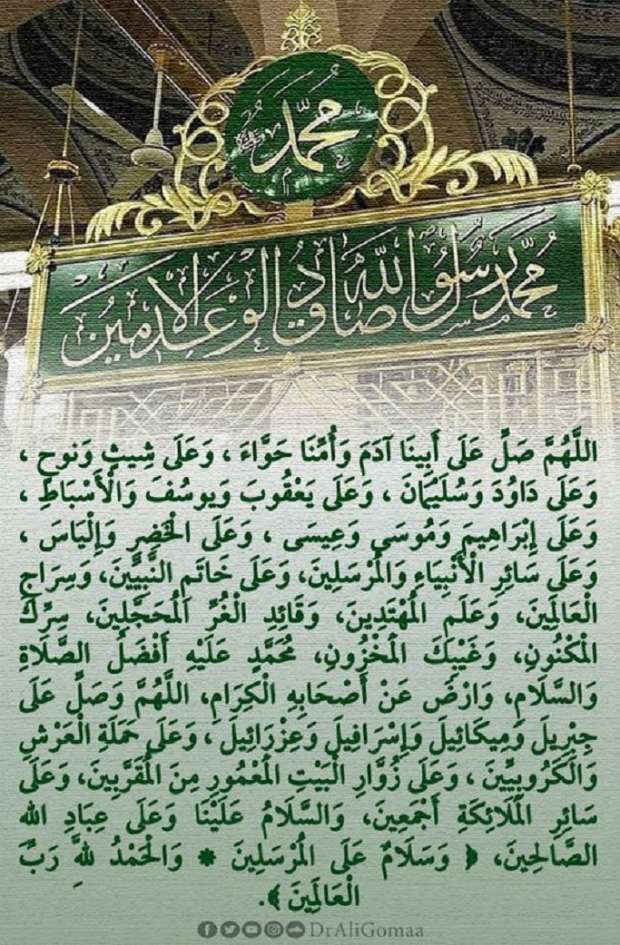 محمد ﷺ
محمد رسول الله صادق الوعد الأمين
اللَّهُمَّ صَلِّ عَلَى أَبِينَا آدَمَ وَأُمِّنَا حَوَّاءَ ، وَعَلَى شِيثٍ وَنوحٍ ،
وَعَلَى دَاوُدَ وَسُلَيْمَانَ ، وَعَلَى يَعْقُوبَ وَيوسُفَ وَالْأَسْبَاطِ ،
وَعَلَى إِبْرَاهِيمَ وَمُوسَى وَعِيسَى ، وَعَلَى الْخَضِرِ وَإِلْيَاسَ ،
وَعَلَى سَائِرِ الْأَنْبِيَاءِ وَالْمُرْسَلِينَ، وَعَلَى خَاتَمِ النَّبِيِّينَ، وَسِرَاجِ
الْعَالَمِينَ، وَعَلَمِ الْمُهْتَدِينَ، وَقَائِدِ الْغُرِّ الْمُحَجَّلِينَ، سِرِّكَ
الْمَكْنُونِ، وَغَيْبِكَ الْمَخْزُونِ، مُحَمَّدٍ عَلَيْهِ أَفْضَلُ الصَّلَاةِ
وَالسَّلَامِ، وَارْضَ عَنْ أَصْحَابِهِ الْكِرَامِ، اللَّهُمَّ وَصَلِّ عَلَى
جِبْرِيلَ وَمِيكَائِيلَ وَإِسْرَافِيلَ وَعِزْرَائِيلَ ، وَعَلَى حَمَلَةِ الْعَرْشِ
وَالْكَرُوبِيِّينَ ، وَعَلَى زُوَّارِ الْبَيْتِ الْمَعْمُورِ مِنَ الْمُقَرَّبِينَ، وَعَلَى
سَائِرِ الْمَلَائِكَةِ أَجْمَعِينَ، وَالسَّلَامُ عَلَيْنَا وَعَلَى عِبَادِ الله
الصَّالِحِينَ، ﴿ وَسَلَامٌ عَلَى الْمُرْسَلِينَ * وَالْحَمْدُ لِلَّهِ رَبِّ
الْعَالَمِينَ ﴾.
DrAliGomaa